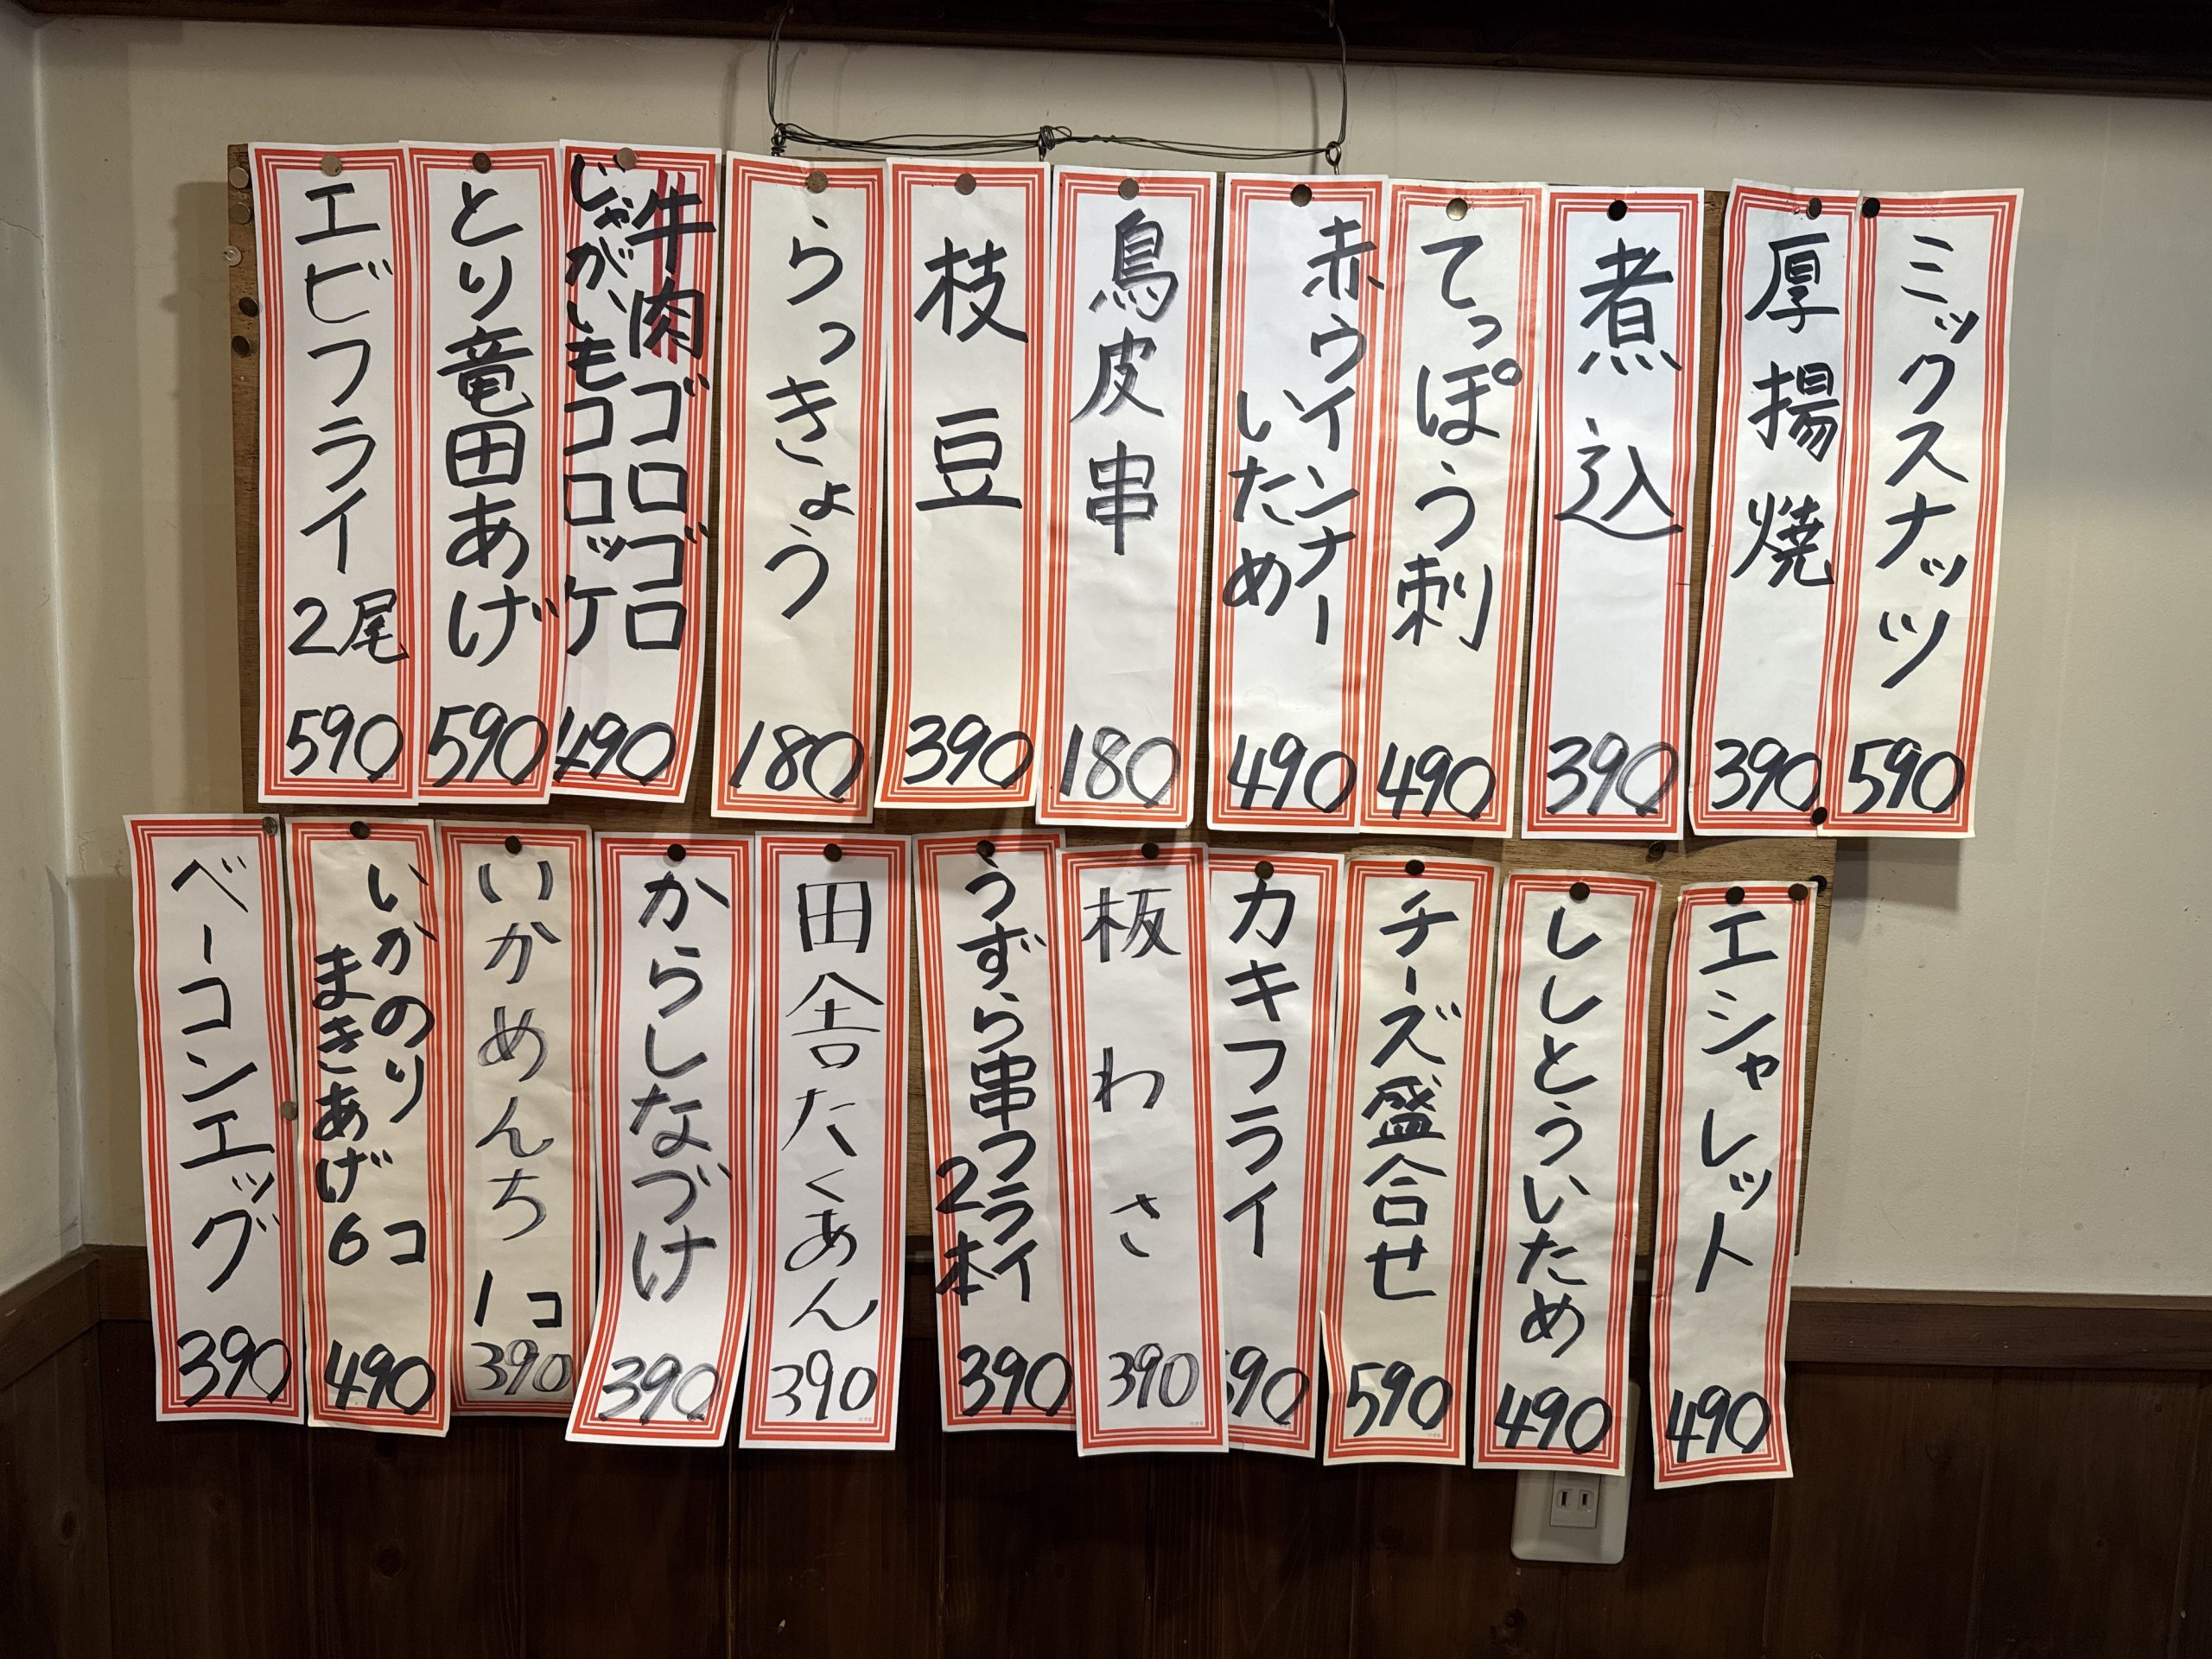 ミックスナッツ
590
厚揚焼
390
煮込
390
てっぽう刺
490
赤ウインナー
いため
490
鳥皮串
180
枝豆
390
らっきょう
180
牛肉ゴロゴロ
じゃがいもコロッケ
490
とり竜田あげ
590
エビフライ2尾
590
エシャレット
490
ししとういため
490
チーズ盛合せ
590
カキフライ
90
板わさ
390
うずら串フライ
2本
390
田舎たくあん
390
からしなづけ
390
いかめんち
1コ
390
いかのり
まきあげ
6コ
490
ベーコンエッグ
390